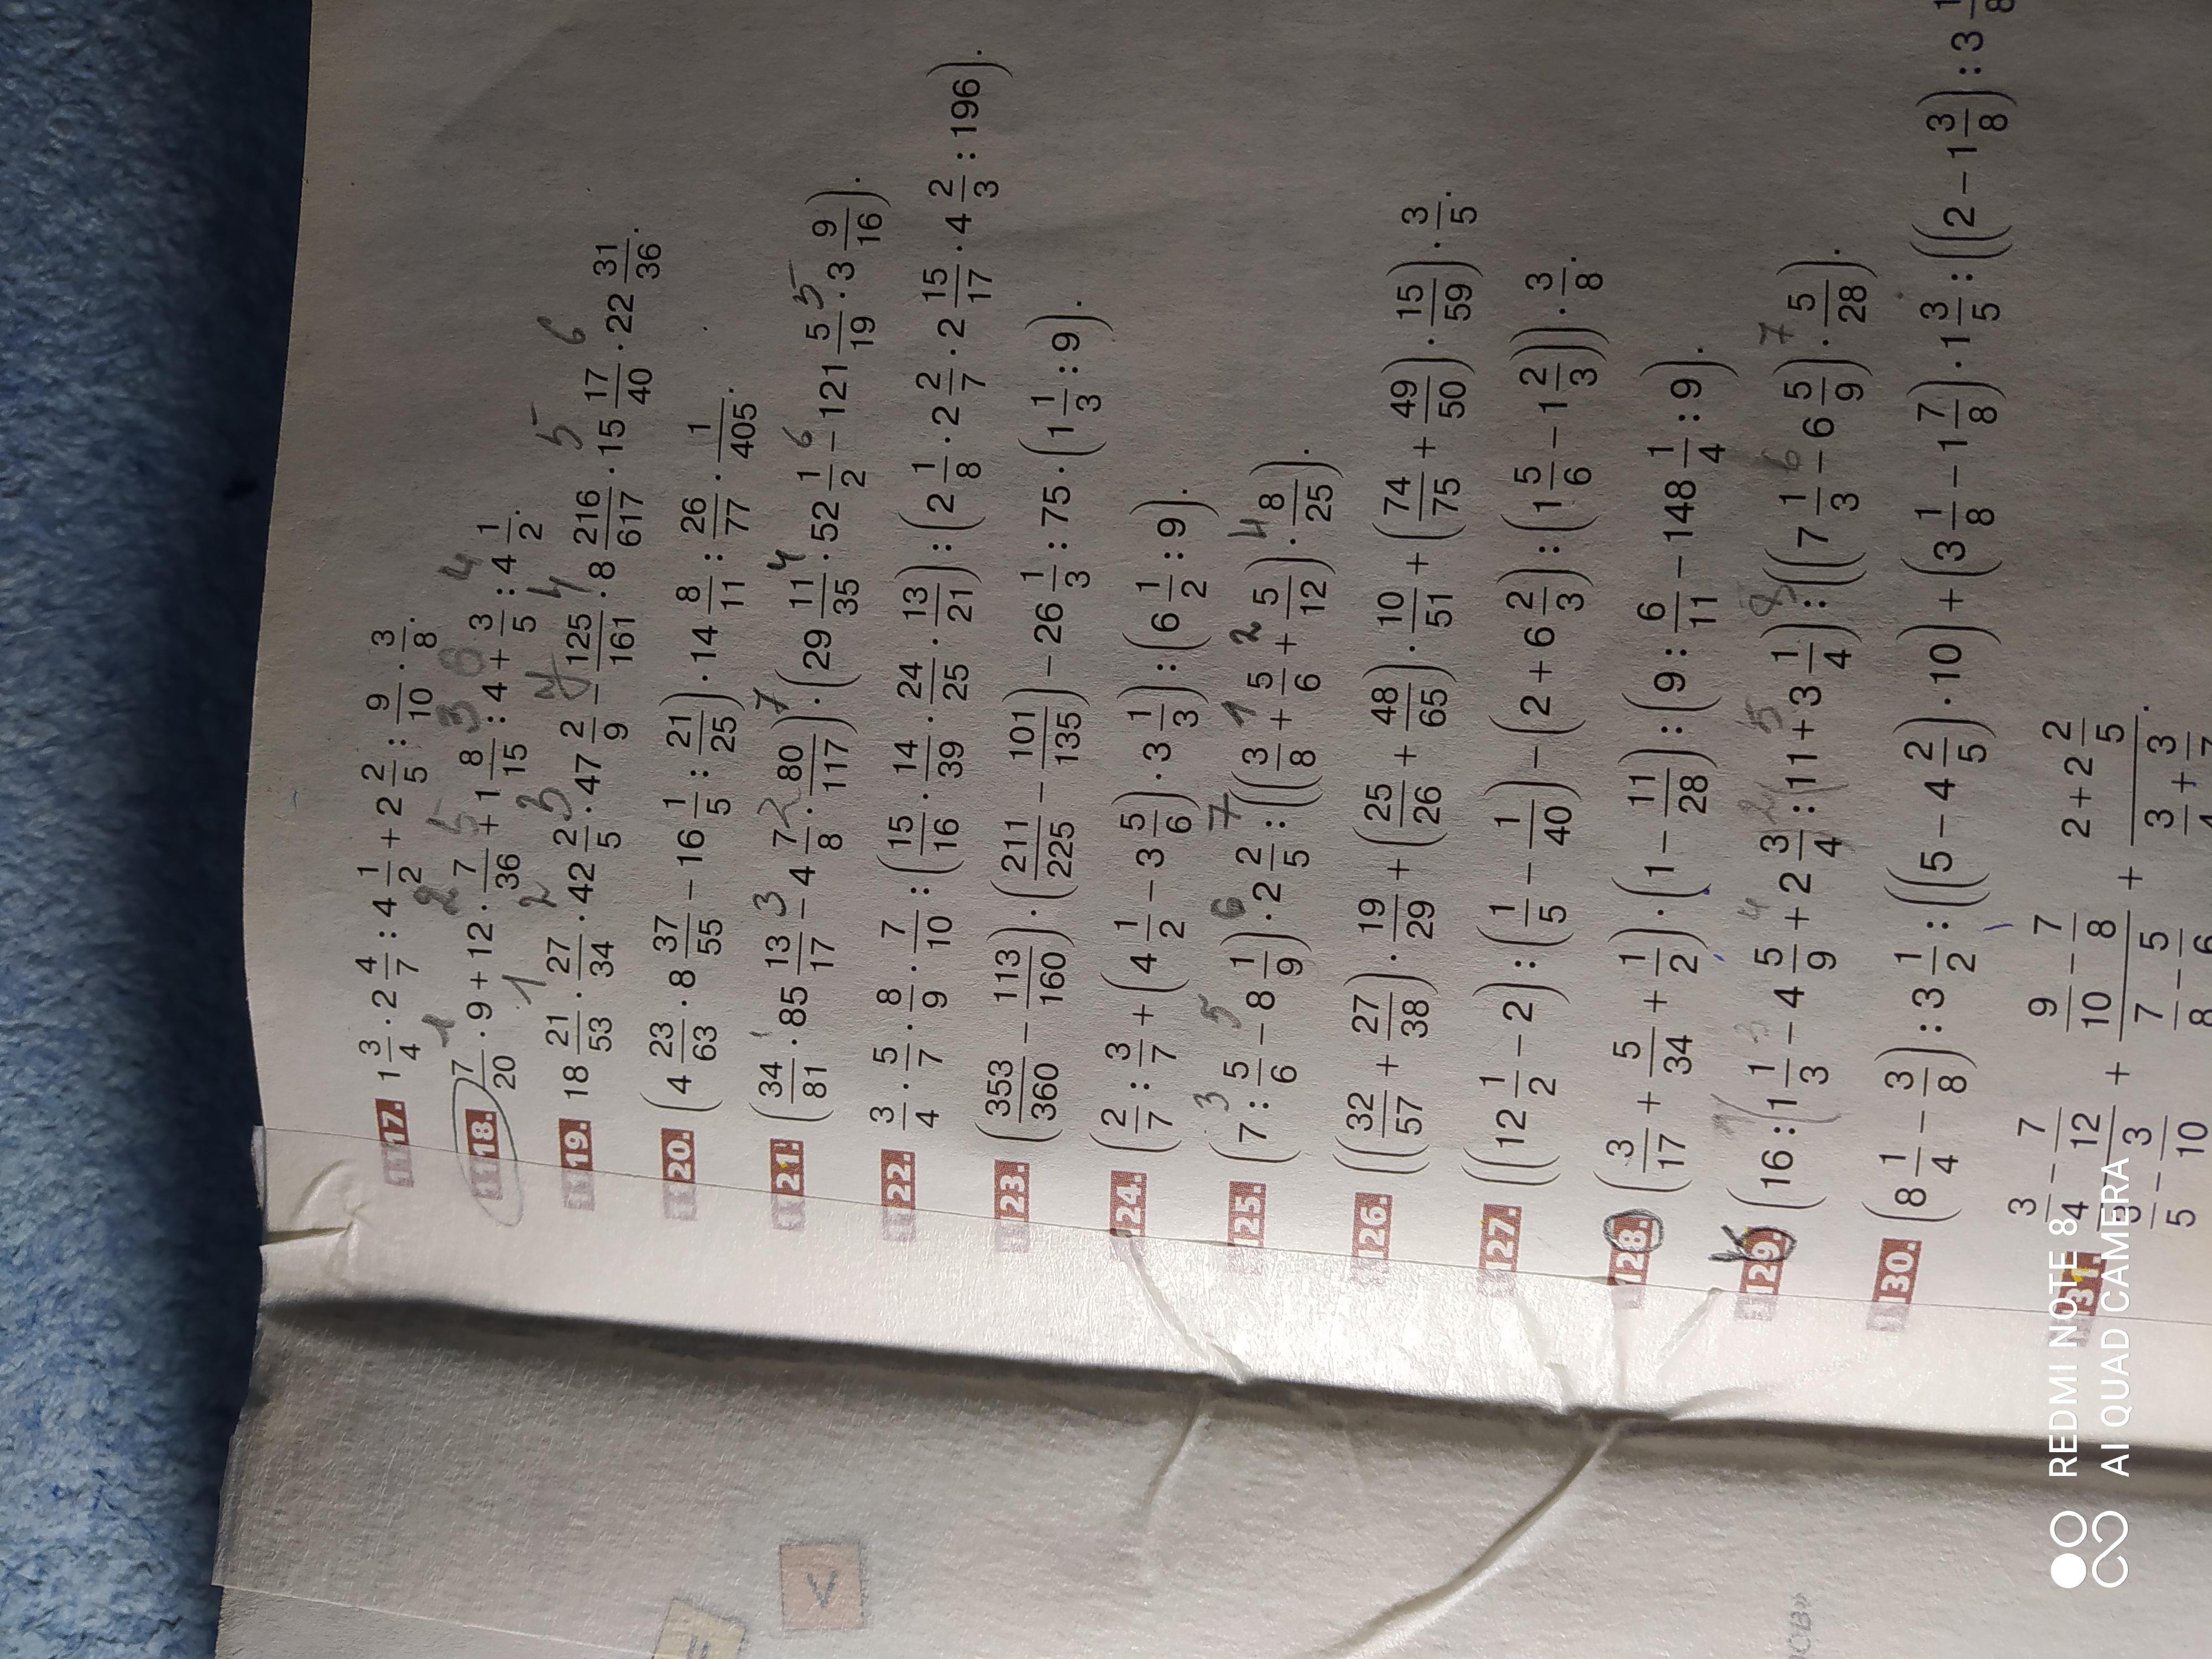 1117. 1 3/4 · 2 4/7 : 4 1/2 + 2 2/5 : 9/10 · 3/8.
1118. 7/20 · 9 + 12 · 7/36 + 1 8/15 : 4 + 3/5 : 4 1/2.
1119. 18 21/53 · 27/34 · 42 2/5 · 47 2/9 − 125/161 · 8 216/617 · 15 17/40 · 22 31/36.
1120. (4 23/63 · 8 37/55 − 16 1/5 : 21/25) · 14 8/11 : 26/77 · 1/405.
1121. (34/81 · 85 13/17 − 4 7/8 · 80/117) · (29 11/35 · 52 1/2 − 121 5/19 : 3 9/16).
1122. 3/4 · 5/7 · 8/9 · 7/10 : (15/16 · 14/39 · 24/25 · 13/21) : (2 1/8 · 2 2/7 · 2 15/17 · 4 2/3 : 196).
1123. (353/360 − 113/160) · (211/225 − 101/135) − 26 1/3 : 75 · (1 1/3 : 9).
124. (2/7 : 3/7 + (4 1/2 − 3 5/6) · 3 1/3) : (6 1/2 : 9).
125. (7 : 5/6 − 8 1/9) · 2 2/5 : ((3/8 + 5/6 + 5/12) · 8/25).
126. ((32/57 + 27/38) · 19/29 + (25/26 + 48/65) · 10/51 + (74/75 + 49/50) · 15/59) · 3/5.
127. ((12 1/2 − 2) : (1/5 − 1/40) − (2 + 6 2/3) : (1 5/6 − 1 2/3)) · 3/8.
128. (3/17 + 5/34 + 1/2) · (1 − 11/28) : (9 : 6/11 − 148 1/4 : 9).
129. (16 : 1 1/3 − 4 5/9 + 2 3/4 : 11 + 3 1/4) : ((7 1/3 − 6 5/9) · 5/28).
130. (8 1/4 − 3/8) : 3 1/2 : ((5 − 4 2/5) · 10) + (3 1/8 − 1 7/8) · 1 3/5 : ((2 − 1 3/8) : 3
31. 3/4 − 7/12 + 9/10 − 7/8 + 2 + 2 2/5
5 − 3/10 7/8 − 5/6 3/4 + 3/7.
REDMI NOTE 8
AI QUAD CAMERA